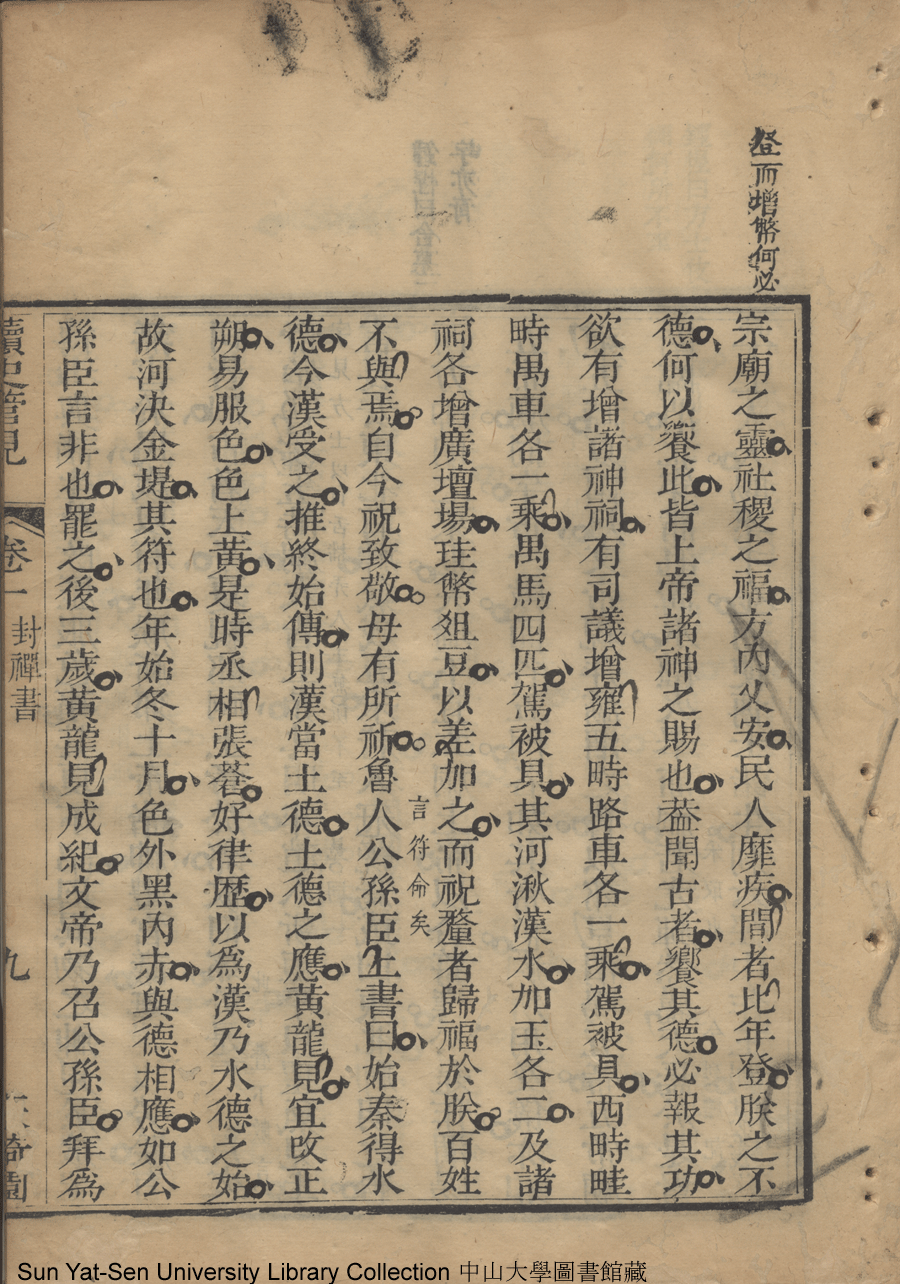 登而增幣何必
宗廟之靈社稷之福方內乂安民人靡疾間者比年登朕之不
德何以饗此皆上帝諸神之賜也葢聞古者饗其德必報其功
欲有增諸神祠有司議增雍五畤路車各一乘駕被具西畤畦
畤禺車各一乘禺馬四匹駕被具其河湫漢水加玉各二及諸
祠各增廣壇場珪幣俎豆以差加之而祝釐者歸福於朕百姓
不與焉自今祝致敬毋有所祈魯人公孫臣上書曰始秦得水
言符命矣
德今漢受之推終始傳則漢當土德土德之應黃龍見宜改正
朔易服色色上黃是時丞相張蒼好律歷以爲漢乃水德之始
故河決金堤其符也年始冬十月色外黑內赤與德相應如公
孫臣言非也罷之後三歲黃龍見成紀文帝乃召公孫臣拜爲
讀史管見
卷一
封禪書
九
Sun Yat-Sen University Library Collection 中山大學圖書館藏